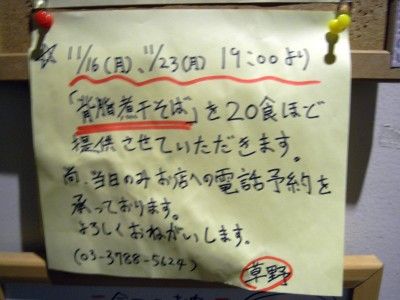 ☆ 11/16(月)、11/23(月) 19:00より
「背脂煮干そば」を20食ほど
提供させていただきます。
尚、当日のみお店への電話予約を
承っております。
よろしくおねがいします。
(03-3788-5624)
草野